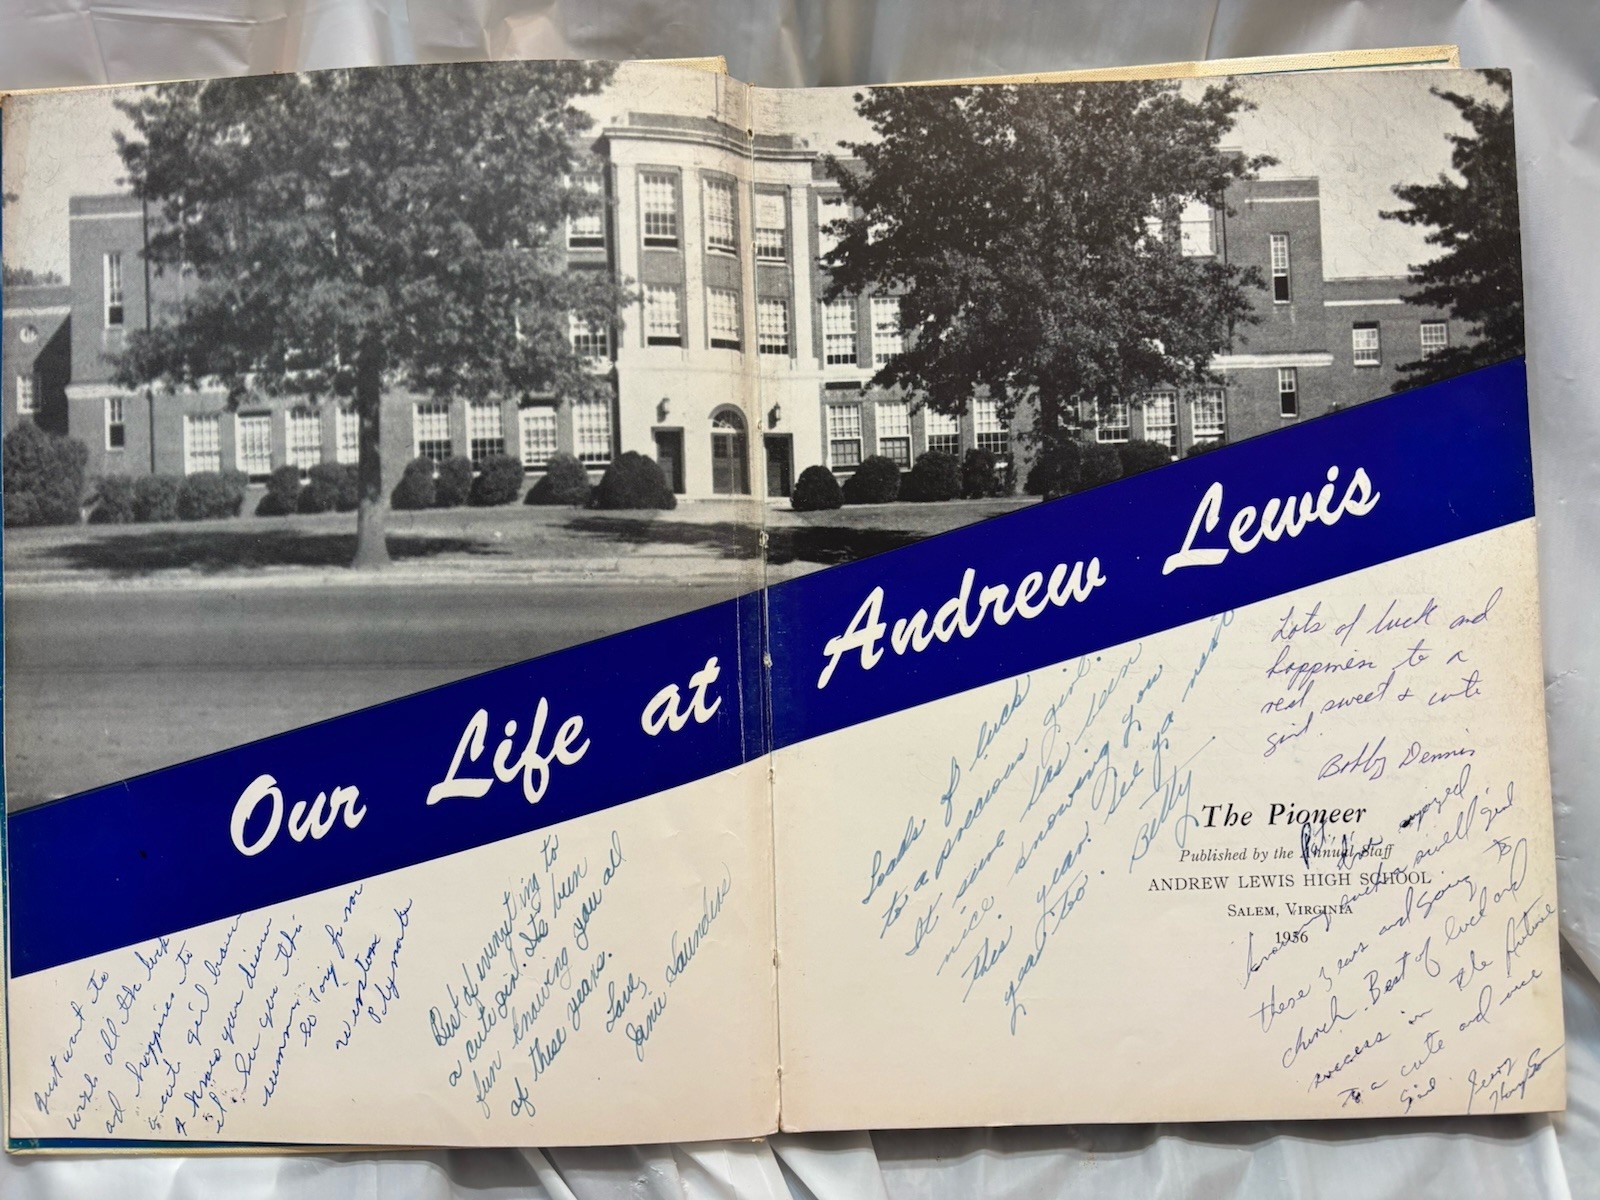 Our Life at Andrew Lewis
Just want to
wish all the luck
ad happines to
a cute girl
I know your
it. See you this
summer
so long for now
Winston
Polymale
Best of everything to
a cute girl. Its been
fun knowing you all
of these years.
Love,
Janie Saunders
Looks of luck
to a precious girl.
It sure has been
nice knowing you
this year. See ya next
year too.
Betty
Lots of luck and
happiness to a
real sweet & cute
girl.
Bobby Dennis
The Pioneer
Published by the Annual Staff
ANDREW LEWIS HIGH SCHOOL
Salem, Virginia
1956
enjoyed
knowing such a swell girl
these 3 ears and going to
church. Best of luck and
success in the future
to a cute and nice
Girl
Jerry
Thompson